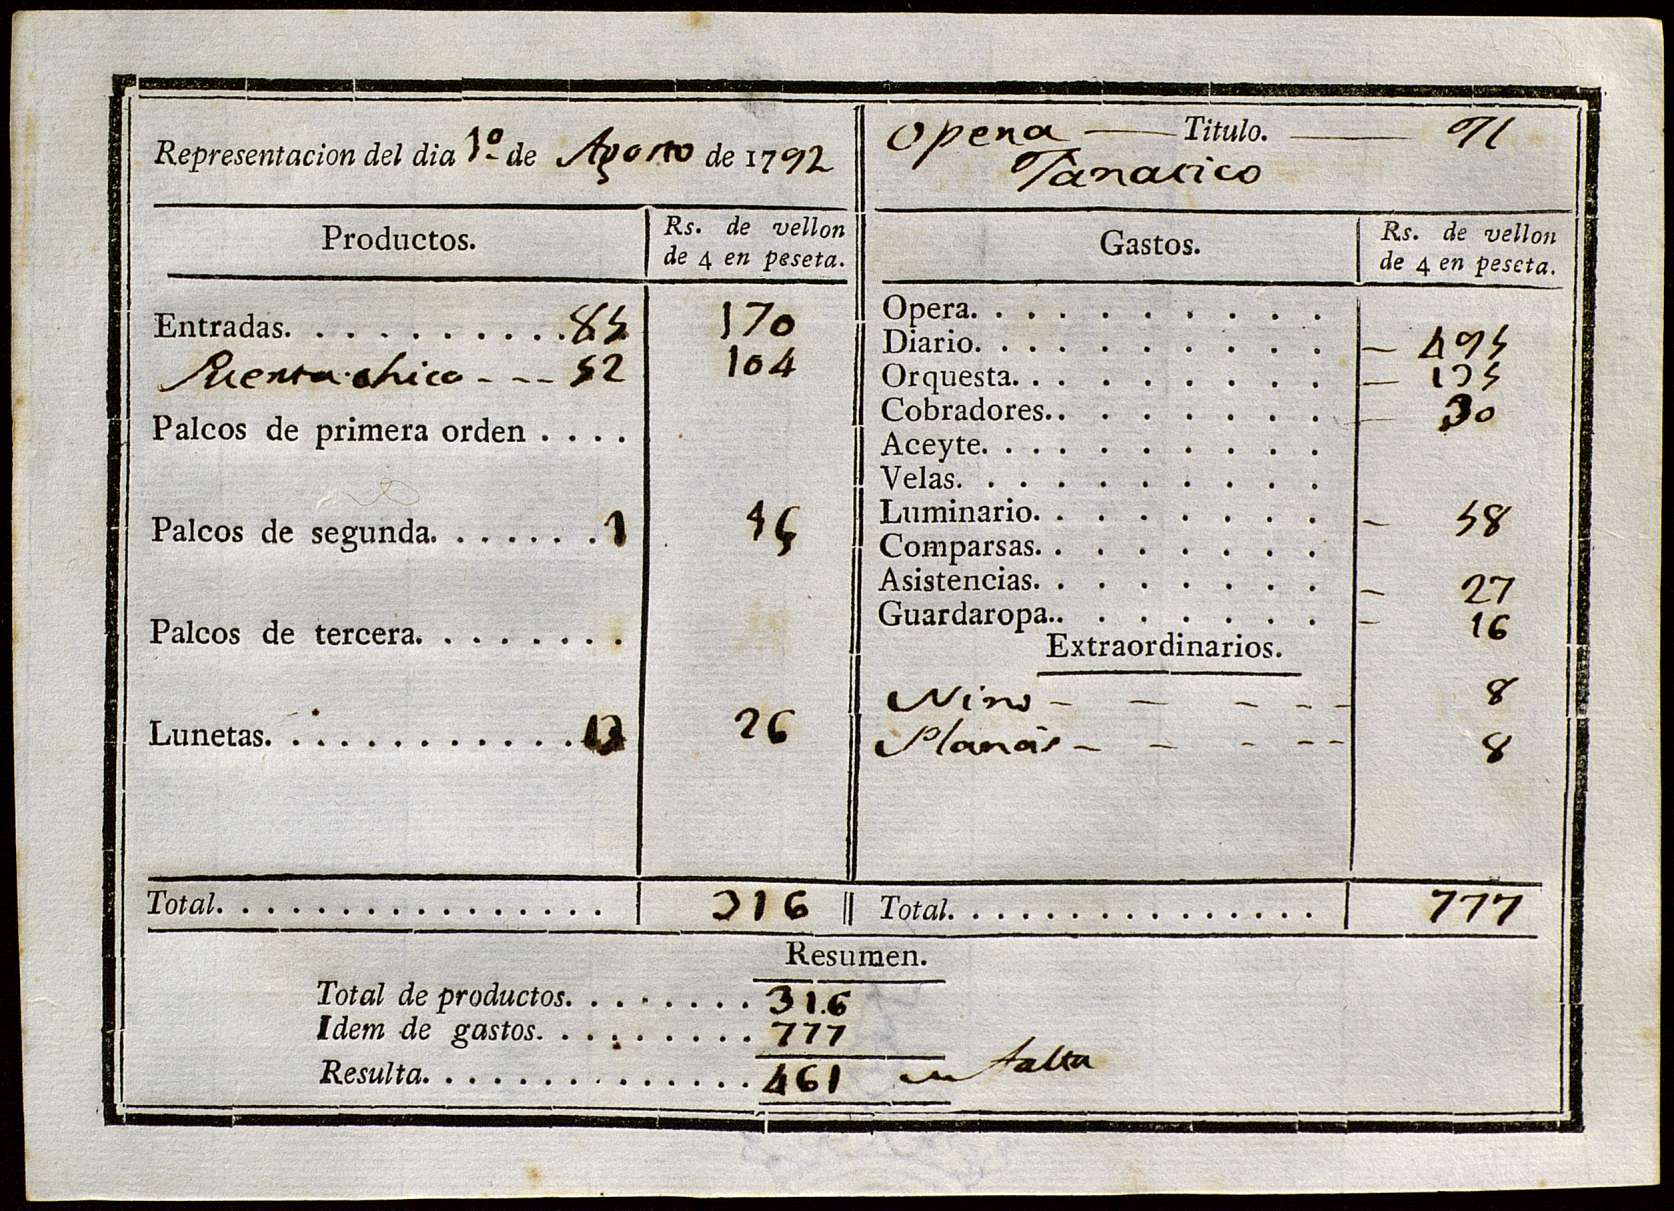 Representacion del dia 1º de Agosto de 1792
Opera — Titulo. — Il
Fanatico
Productos.
Rs. de vellon
de 4 en peseta.
Entradas. . . . . . . . . . . 85 170
Puerta chica - - - 52 104
Palcos de primera orden . . . .
Palcos de segunda. . . . . . . 1 16
Palcos de tercera. . . . . . . .
Lunetas. . . . . . . . . . . . 13 26
Total. . . . . . . . . . . . . . . . 316
Gastos.
Rs. de vellon
de 4 en peseta.
Opera. . . . . . . . . .
Diario. . . . . . . . . . — 495
Orquesta. . . . . . . . . — 135
Cobradores. . . . . . . . — 30
Aceyte. . . . . . . . . .
Velas. . . . . . . . . .
Luminario. . . . . . . . — 58
Comparsas. . . . . . . .
Asistencias. . . . . . . . — 27
Guardaropa. . . . . . . . — 16
Extraordinarios.
Nino - - - - - 8
Planas - - - - - 8
Total. . . . . . . . . . . . . . . . 777
Resumen.
Total de productos. . . . . . . . 316
Idem de gastos. . . . . . . . . 777
Resulta. . . . . . . . . . . . . . 461 en falta